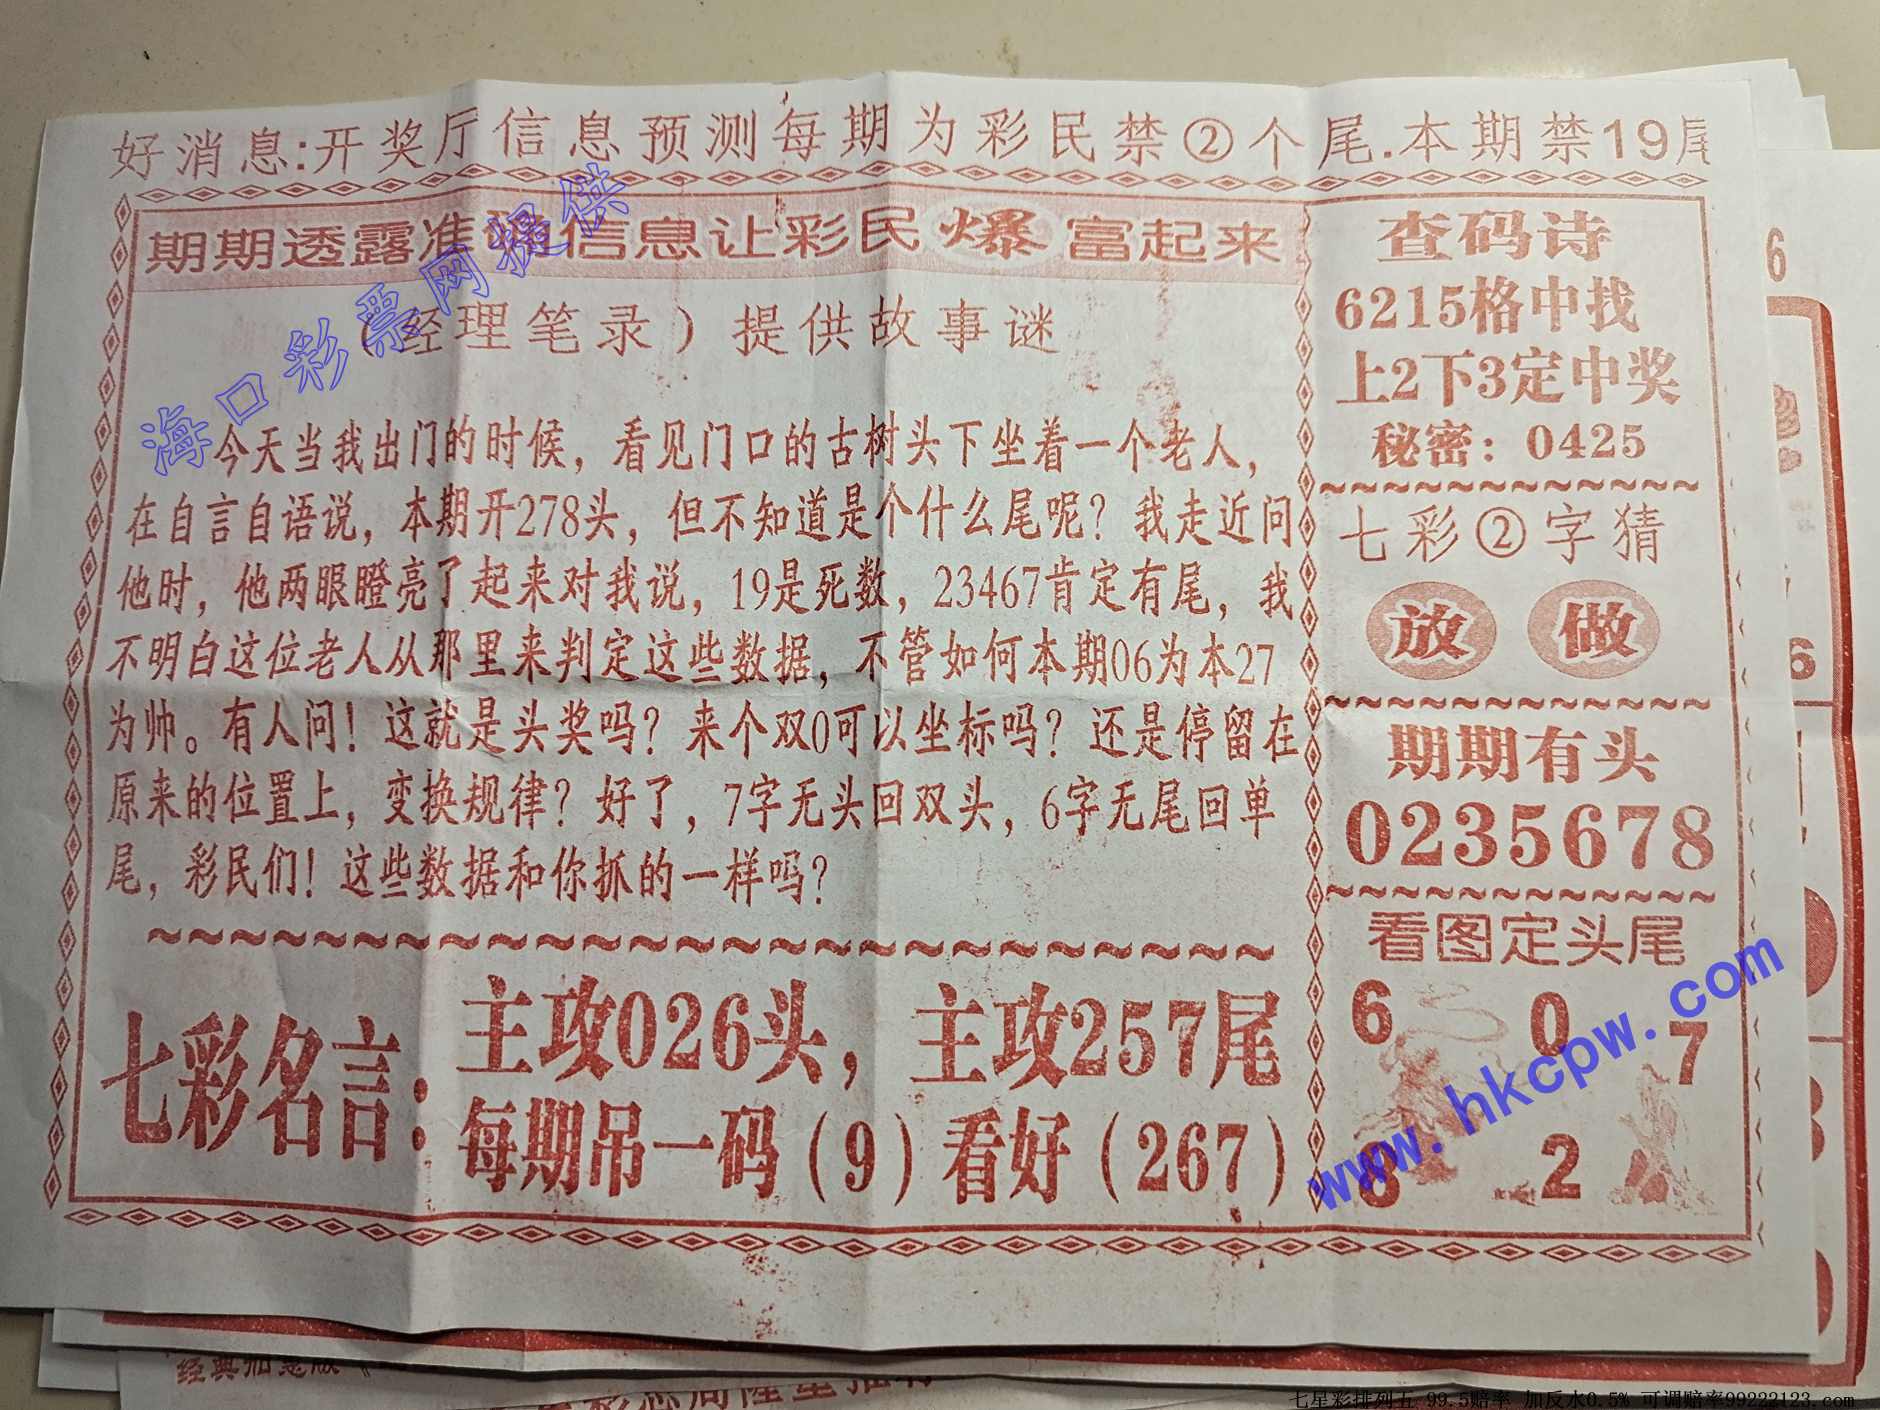 好消息:开奖厅信息预测每期为彩民禁②个尾.本期禁19尾
期期透露准确信息让彩民爆富起来
（经理笔录）提供故事谜
今天当我出门的时候，看见门口的古树头下坐着一个老人，
在自言自语说，本期开278头，但不知道是个什么尾呢？我走近问
他时，他两眼瞪亮了起来对我说，19是死数，23467肯定有尾，我
不明白这位老人从那里来判定这些数据，不管如何本期06为本27
为帅。有人问！这就是头奖吗？来个双0可以坐标吗？还是停留在
原来的位置上，变换规律？好了，7字无头回双头，6字无尾回单
尾，彩民们！这些数据和你抓的一样吗？
七彩名言：
主攻026头，主攻257尾
每期吊一码（9）看好（267）
查码诗
6215格中找
上2下3定中奖
秘密：0425
七彩②字猜
放 做
期期有头
0235678
看图定头尾
6 0 7
8 2
海口彩票网提供
www.hkcpw.com
6
6
经典加急版
七星彩排列五 99.5赔率 加反水0.5% 可调赔率99222123.com